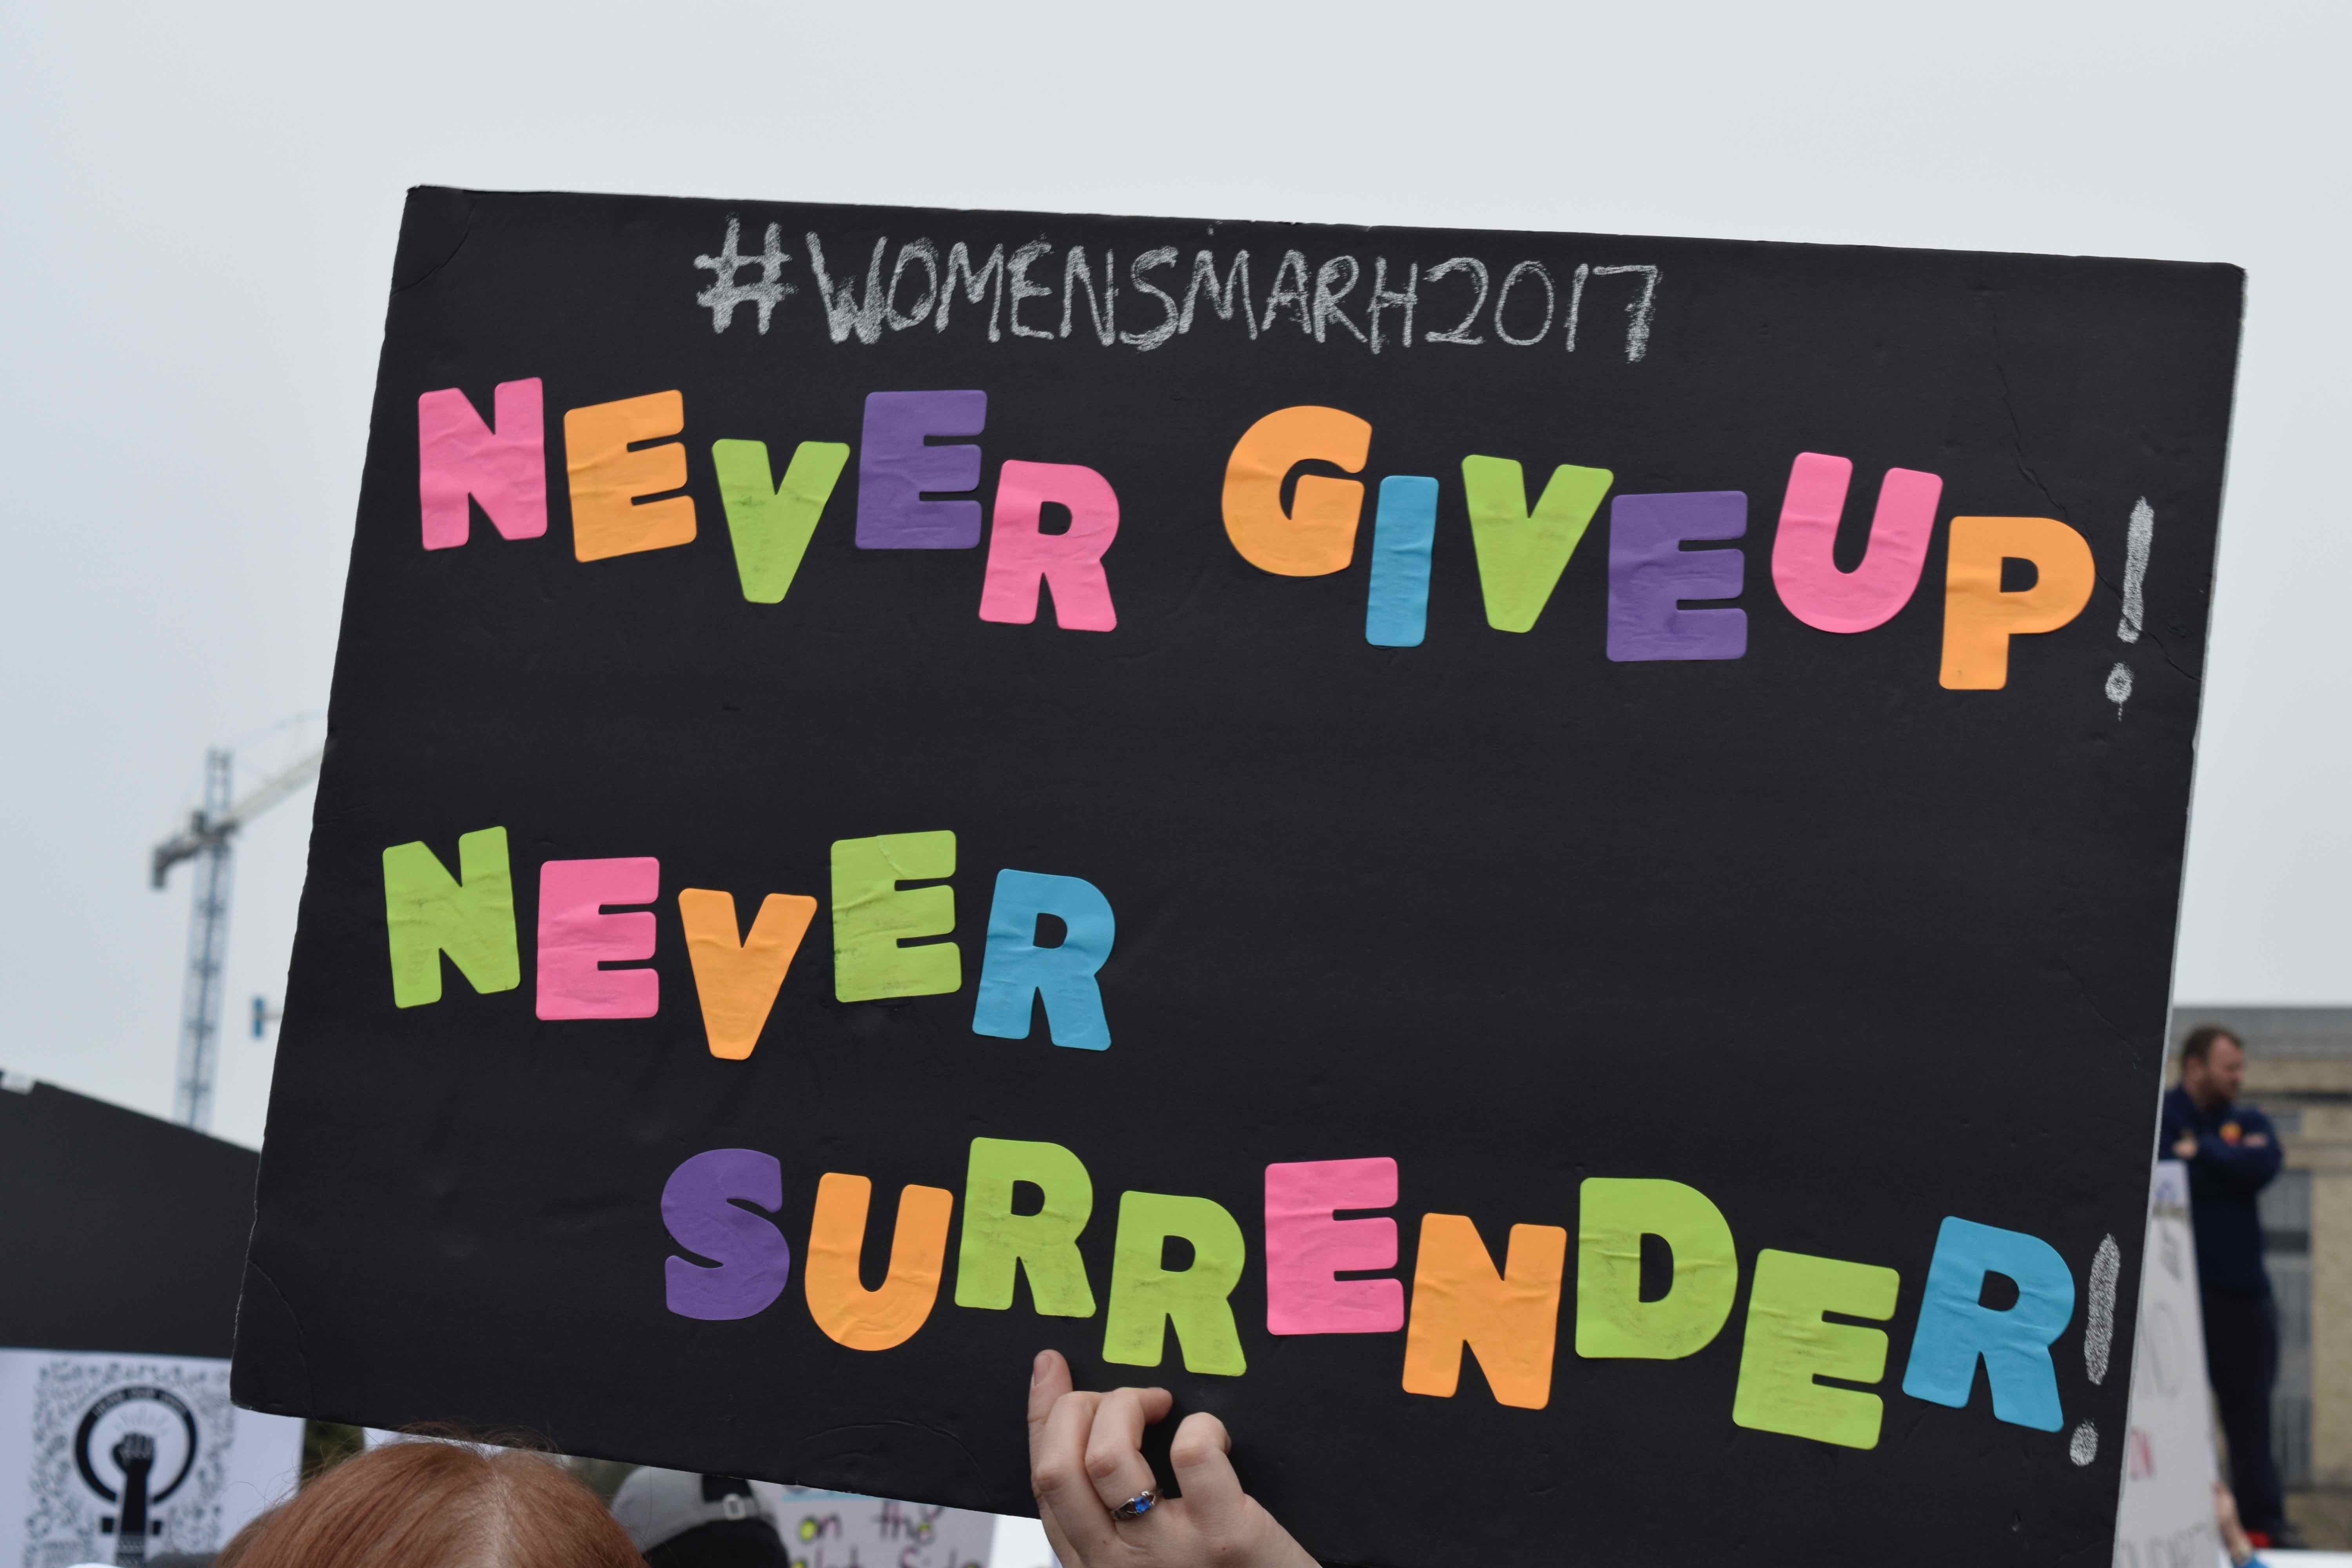 #WOMENSMARH2017
NEVER GIVE UP!
NEVER
SURRENDER!
on the